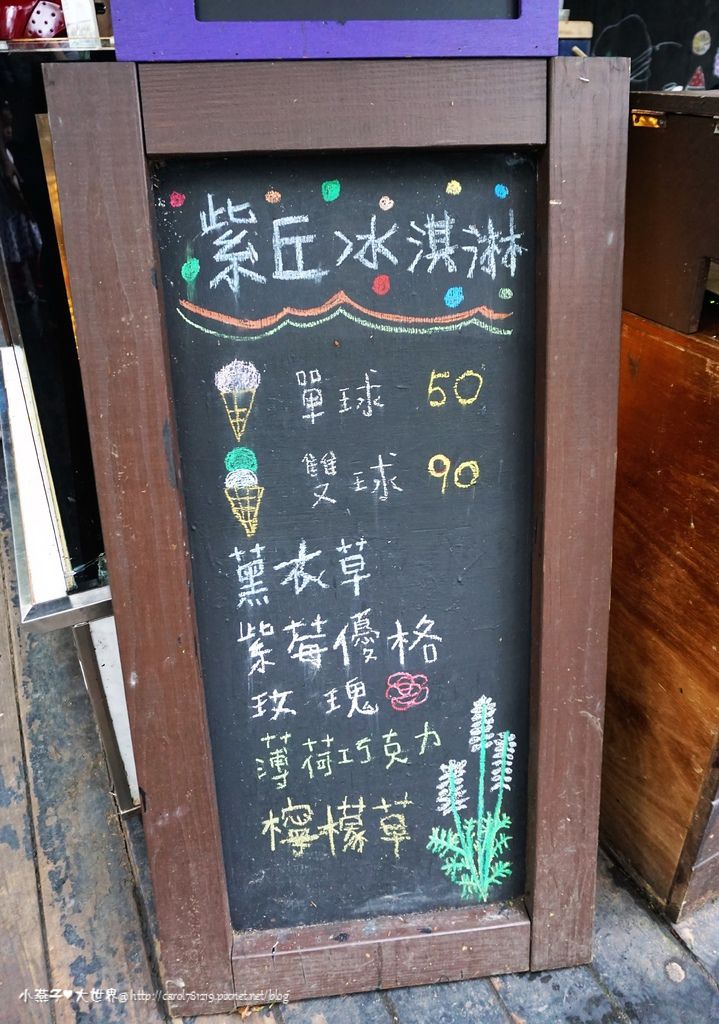 紫丘冰淇淋
單球 50
雙球 90
薰衣草
紫莓優格
玫瑰
薄荷巧克力
檸檬草
小燕子♥大世界@http://carol781219.pixnet.net/blog